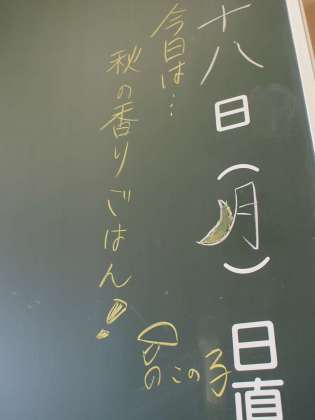 十八日(月)日直
今日は…
秋の香りごはん!
きのこの子